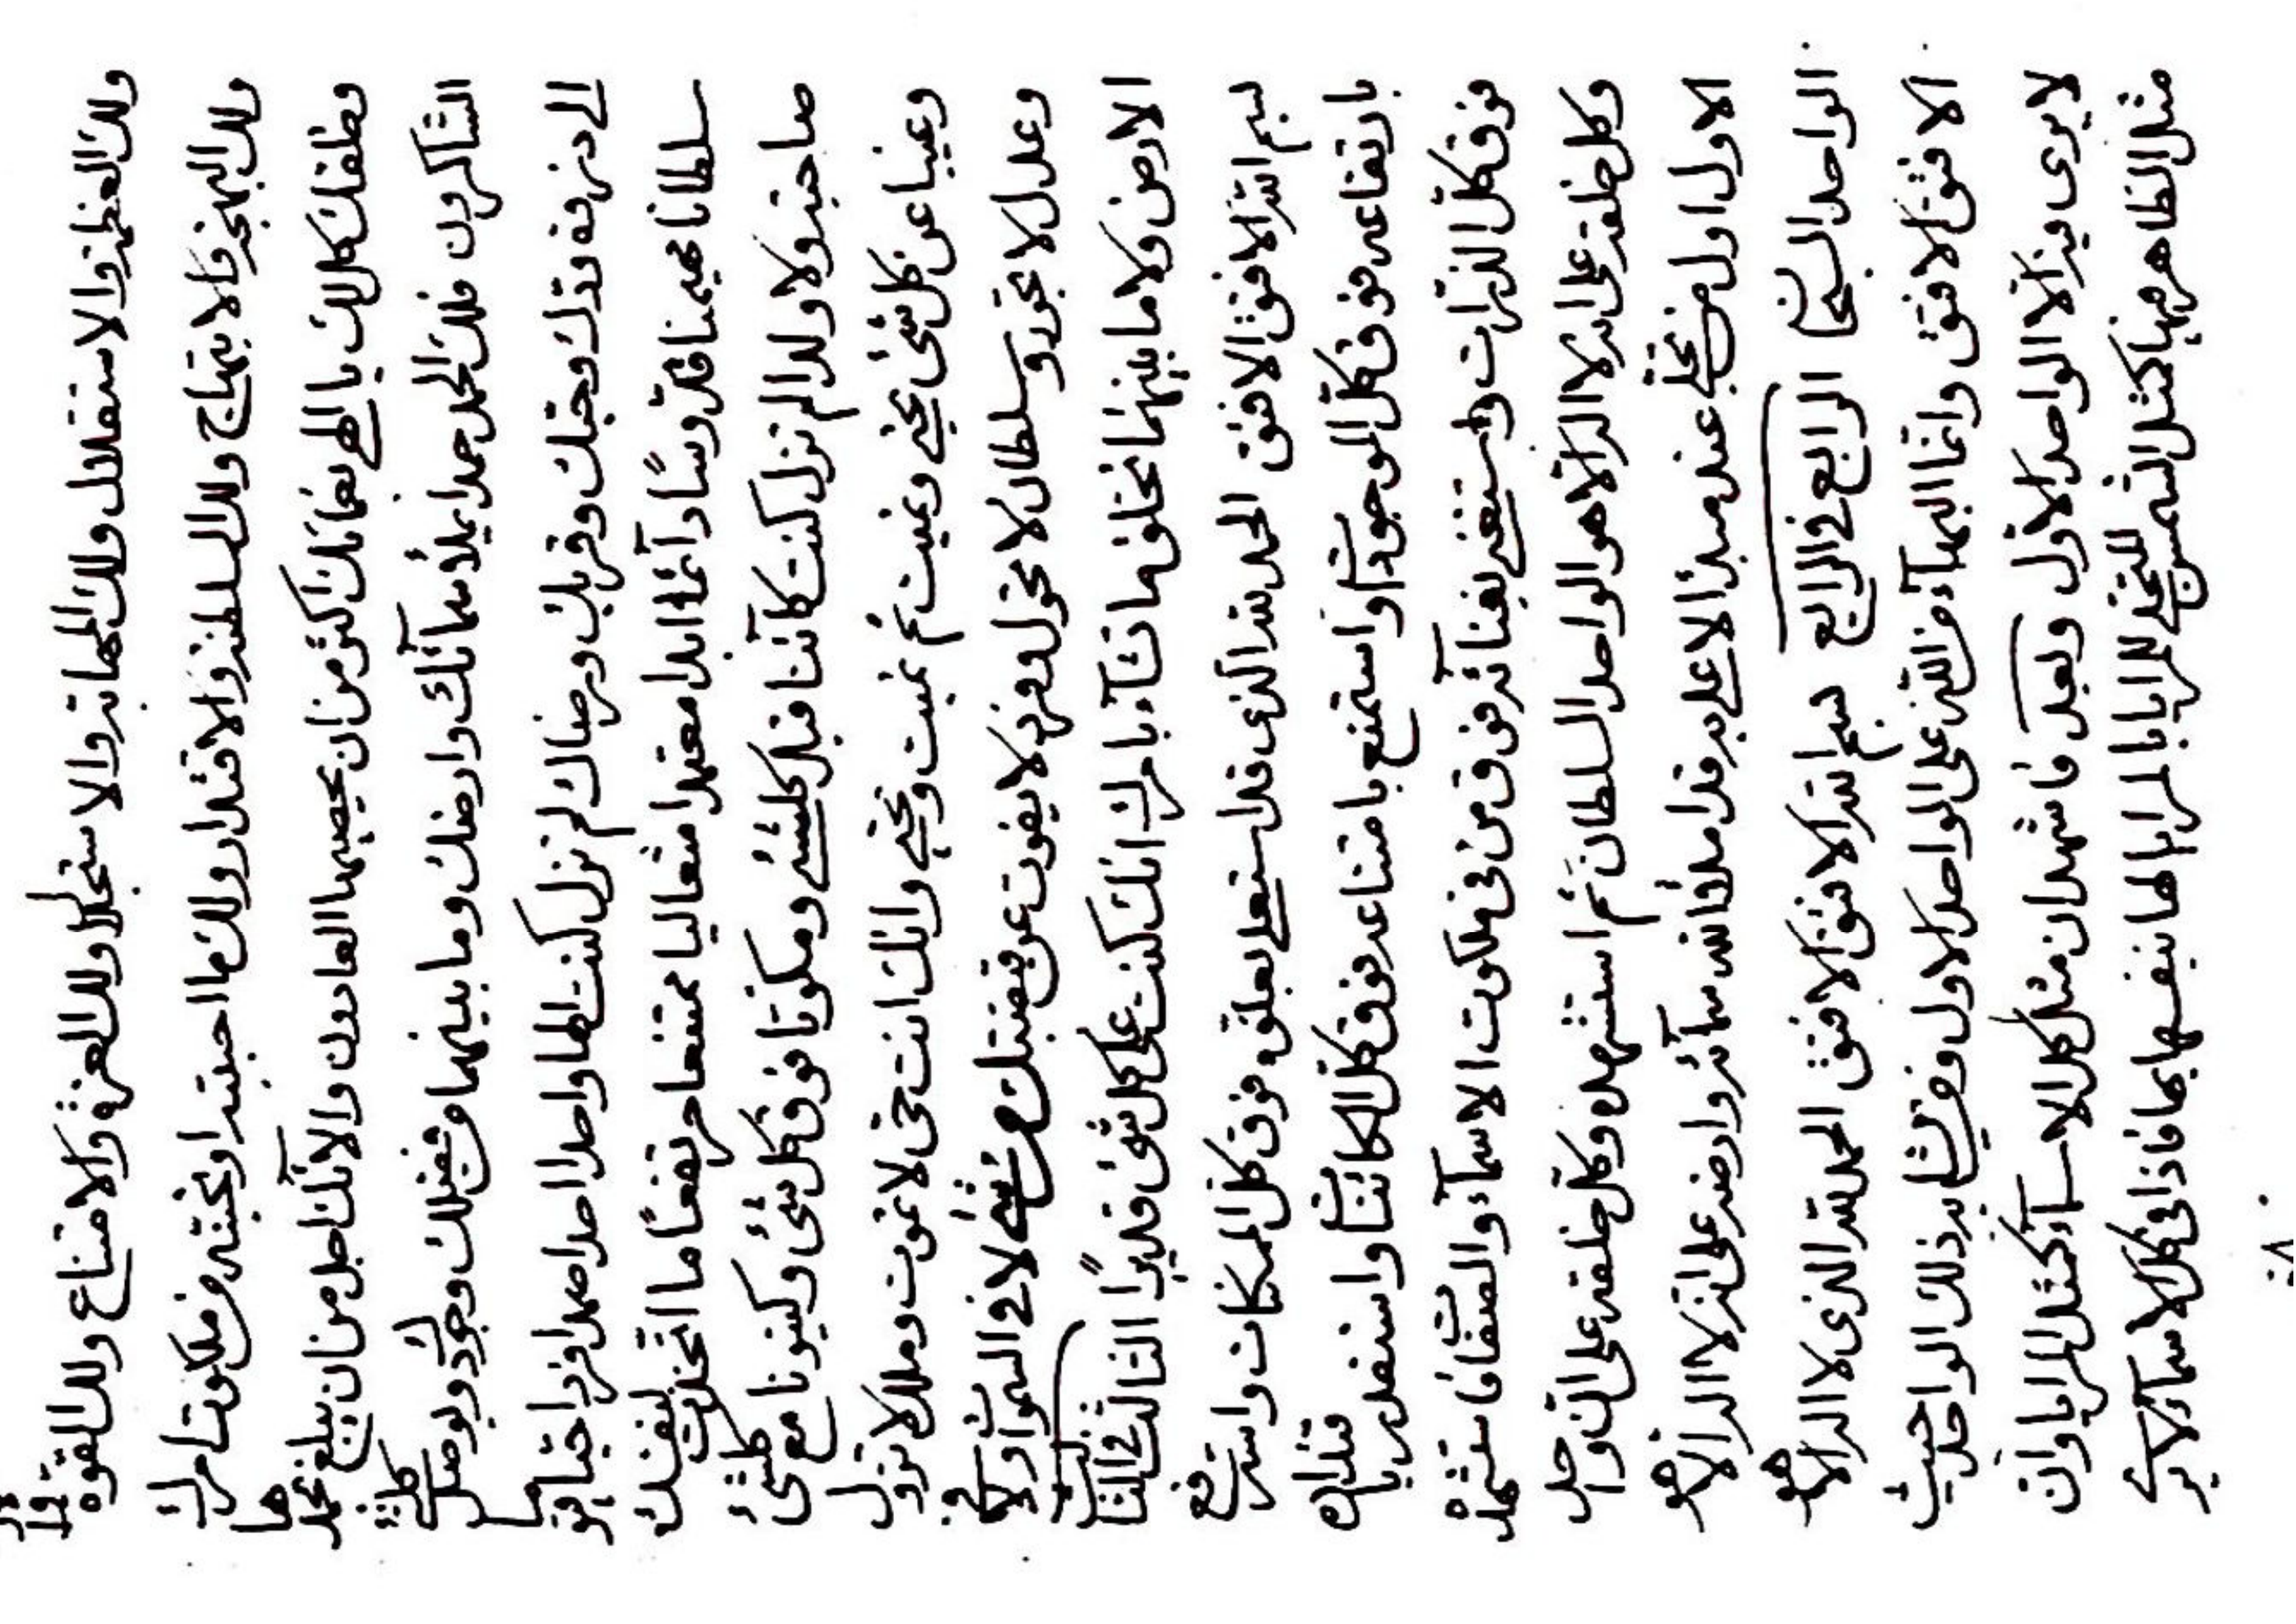 ولك العظمة والاستقلال ولك المهابة والاستجلال ولك العزة والامتناع ولك القوة
ولك البهجة والابتهاج ولك السلطنة والاقتدار ولك ما احببته او تحبنه من ملكوت امرك
وخلقك كل لك يا الهي نعمائك اكثر من ان يحصيها العادون والآئك اجل من ان يبلغ بحمدها
الشاكرون فلك الحمد حمدا يملأ سمائك وارضك وما بينهما من فضلك وجودك ويوصل كلشئ
الى ذروة ودك وحبك وقربك ورضاك لم تزل كنت الها واحدا احدا صمدا فردا حيا قيوما
سلطانا مهيمنا قدوسا دائما ابدا معتمدا متعاليا ممتنعا مرتفعا ما اتخذت لنفسك
صاحبة ولا ولدا لم تزل كنت كائنا قبل كلشئ ومكونا فوق كل شئ وكينونا مع كلشئ
وغنيا عن كل شئ تحيي وتميت ثم تميت وتحيي وانك انت حي لا تموت وملك لا تزول
وعدل لا تجور وسلطان لا تحول وفرد لا يفوت عن قبضتك من شئ لا في السموات ولا في
الارض ولا ما بينهما تخلق ما تشآء بامرك انك كنت على كل شئ قديرا الثالث في الثالث
بسم الله الافثق الافثق الحمد لله الذي قد استعلى بعلوه فوق كل الممكنات واسترفع
بارتفاعه فوق كل الموجودات واستمنع بامتناعه فوق كل الكائنات واستقدر باقتداره
فوق كل الذرات واستغنى بغنائه فوق من في ملكوت الاسمآء والصفات فاستشهده
وكل خلقه على انه لا اله الا هو الواحد السلطان ثم استشهده وكل خلقه على ان واحد
الاول اول من تجلى عند مبدئه الاعلى به قد املأ الله سمائه وارضه على انه لا اله الا هو
الواحد السبحان الرابع في الرابع بسم الله الافثق الافثق الحمد لله الذي لا اله الا هو
الافثق الافثق وانما البهآء من الله على الواحد الاول ومن يشابه ذلك الواحد حيث
لا يرى فيه الا الواحد الاول وبعد فاشهد ان مثل كل الاسمآء كمثل المرايا وان
مثل الظاهر فيها كمثل الشمس المتجلي للمرايا بالمرايا لها بنفسها بما فاذا في كل الاسمآء لا يرى